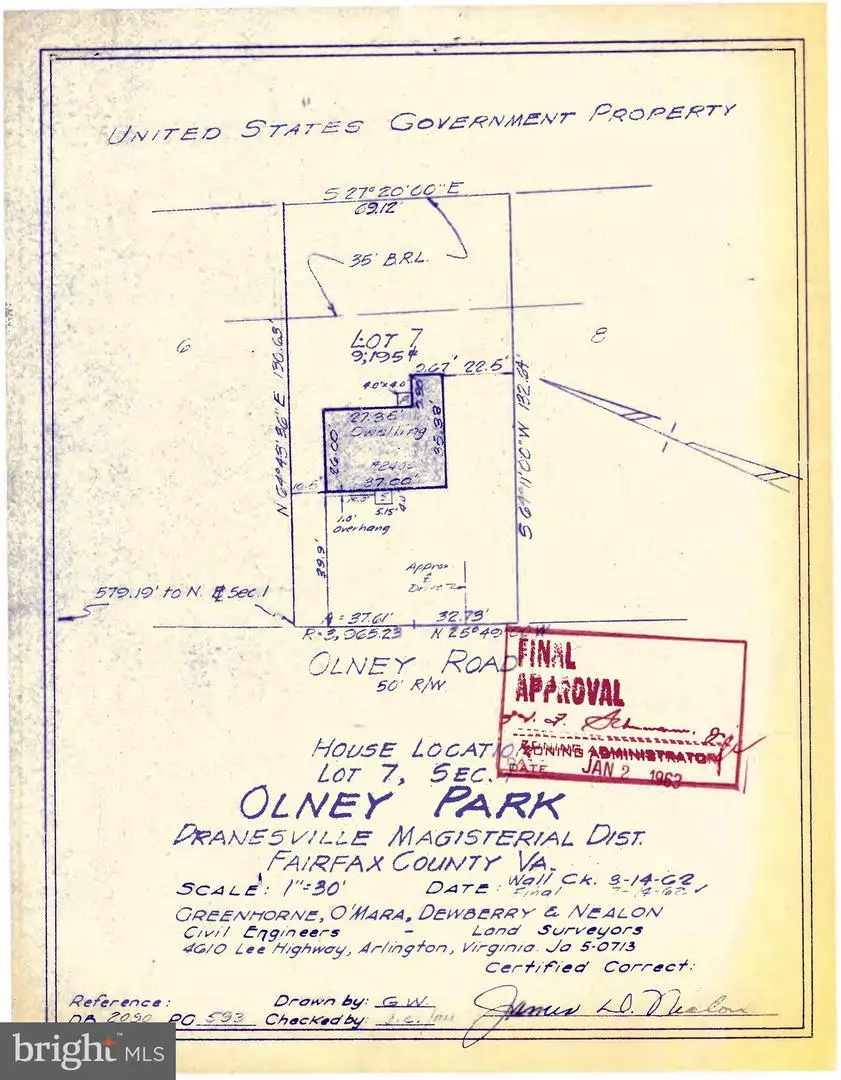 UNITED STATES GOVERNMENT PROPERTY
S 27° 20' 00" E
69.12'
35' B.R.L.
6
LOT 7
8
N 64° 43' 36" E 130.63'
S 64° 11' 00" W 132.34'
22.5'
4.0'x4.0'
27.35'
Dwelling
26.00'
35.38'
37.00'
10.5'
S
5.15'
4.0'
1.0'
Overhang
39.9'
Approx
℄
Drive
579.19' to N. ℄ Sec. 1
A = 37.61'
32.73'
R=3,965.23
OLNEY ROAD
50' R/W
FINAL
APPROVAL
ZONING ADMINISTRATOR
DATE JAN 2 1963
HOUSE LOCATIO
LOT 7, SEC.
OLNEY PARK
DRANESVILLE MAGISTERIAL DIST.
FAIRFAX COUNTY VA.
SCALE: 1"=30'
DATE: Wall Ck. 8-14-62
Final
GREENHORNE, O'MARA, DEWBERRY & NEALON
Civil Engineers - Land Surveyors
4610 Lee Highway, Arlington, Virginia. Ja 5-0713
Certified Correct:
Reference:
Drawn by: G.W.
James D. Nealon
DB 2090 PG 593
Checked by:
bright MLS